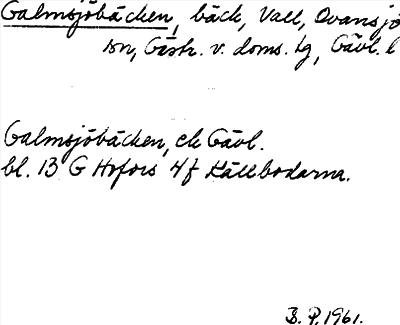 Galmsjöbäcken, bäck, Vall, Ovansjö
sn, Gästr. v. doms. tg, Gävl. l
Galmsjöbäcken, ek Gävl.
bl. 13 G Hofors 4f Källbodarna.
B. P. 1961.